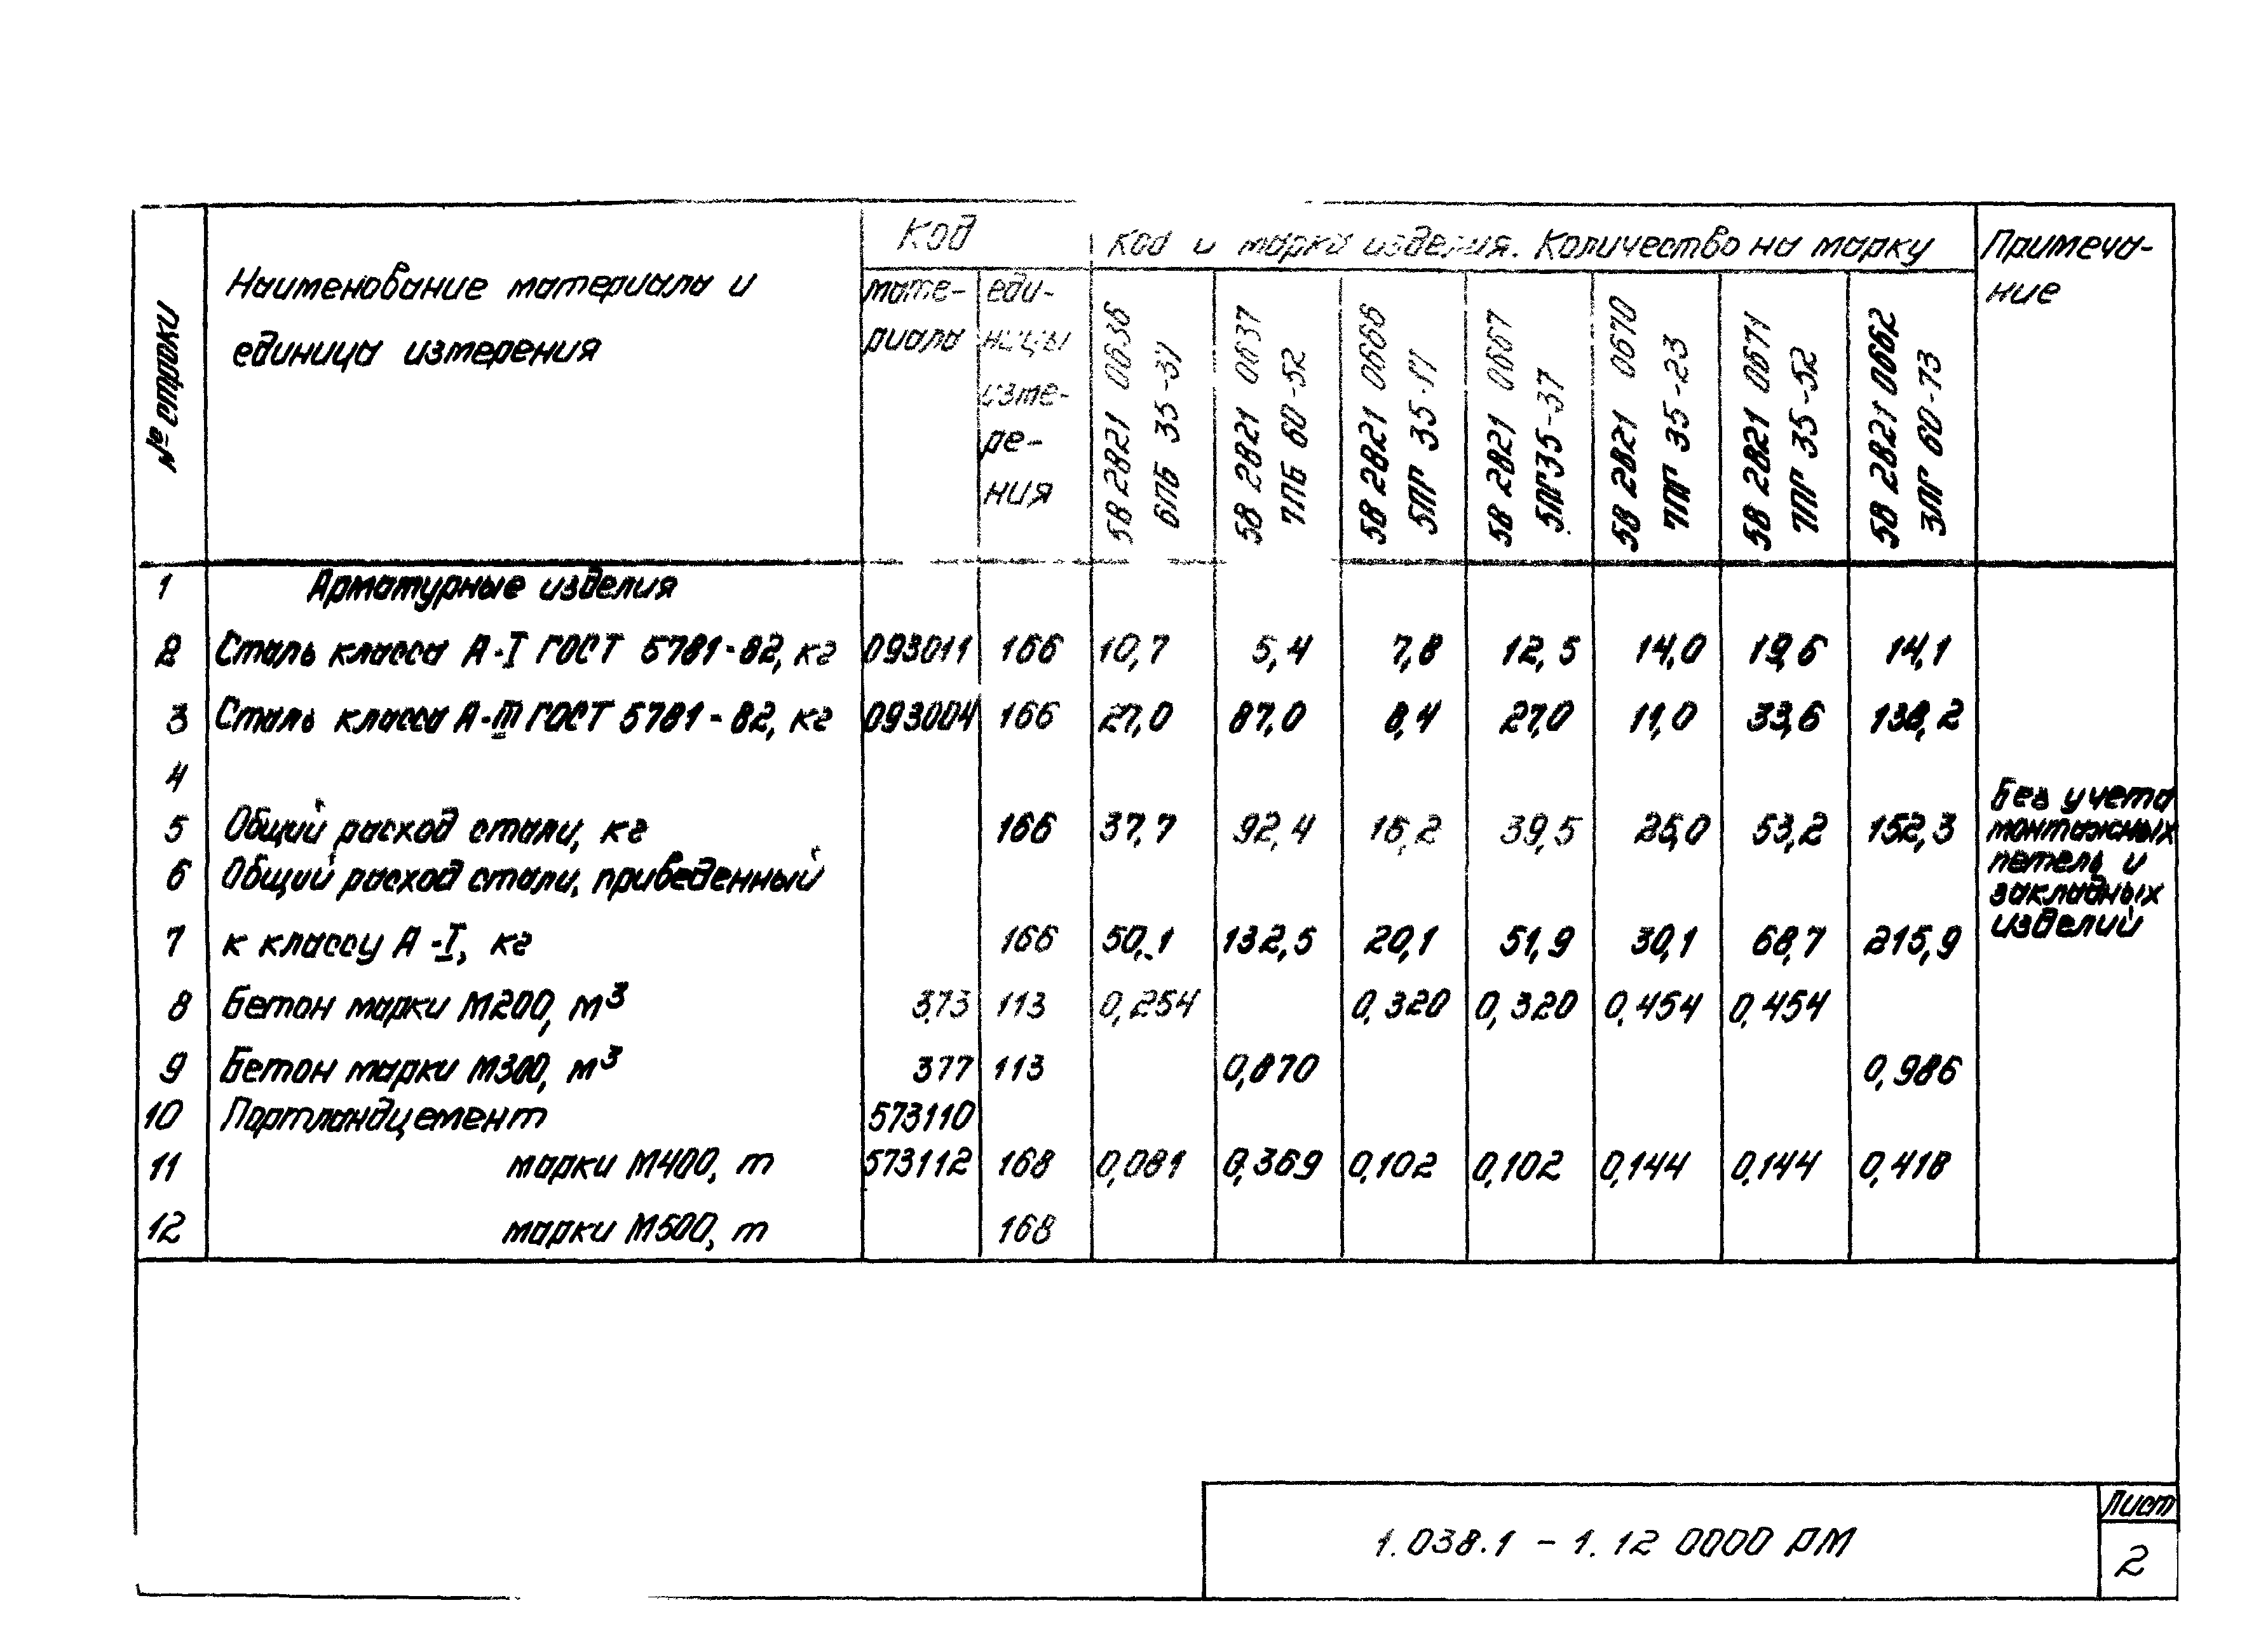 № строки
Наименование материала и
единица измерения
Код
мате-
риала
еди-
ницы
изме-
ре-
ния
Код и марка изделия. Количество на марку
58 2821 0636
6ПБ 35-37
58 2821 0637
7ПБ 60-52
58 2821 0666
5ПГ 35-17
58 2821 0667
5ПГ35-37
58 2821 0670
7ПГ 35-23
58 2821 0671
7ПГ 35-52
58 2821 0662
3ПГ 60-73
Примеча-
ние
1 Арматурные изделия
2 Сталь класса А-I ГОСТ 5781-82, кг 093011 166 10,7 5,4 7,8 12,5 14,0 19,6 14,1
3 Сталь класса А-III ГОСТ 5781-82, кг 093004 166 27,0 87,0 8,4 27,0 11,0 33,6 138,2
4
5 Общий расход стали, кг 166 37,7 92,4 16,2 39,5 25,0 53,2 152,3
6 Общий расход стали, приведенный
7 к классу А-I, кг 166 50,1 132,5 20,1 51,9 30,1 68,7 215,9
Без учета
монтажных
петель и
закладных
изделий
8 Бетон марки М200, м³ 373 113 0,254 0,320 0,320 0,454 0,454
9 Бетон марки М300, м³ 377 113 0,870 0,986
10 Портландцемент 573110
11 марки М400, т 573112 168 0,081 0,369 0,102 0,102 0,144 0,144 0,418
12 марки М500, т 168
1.038.1 - 1.12 0000 РМ
Лист
2